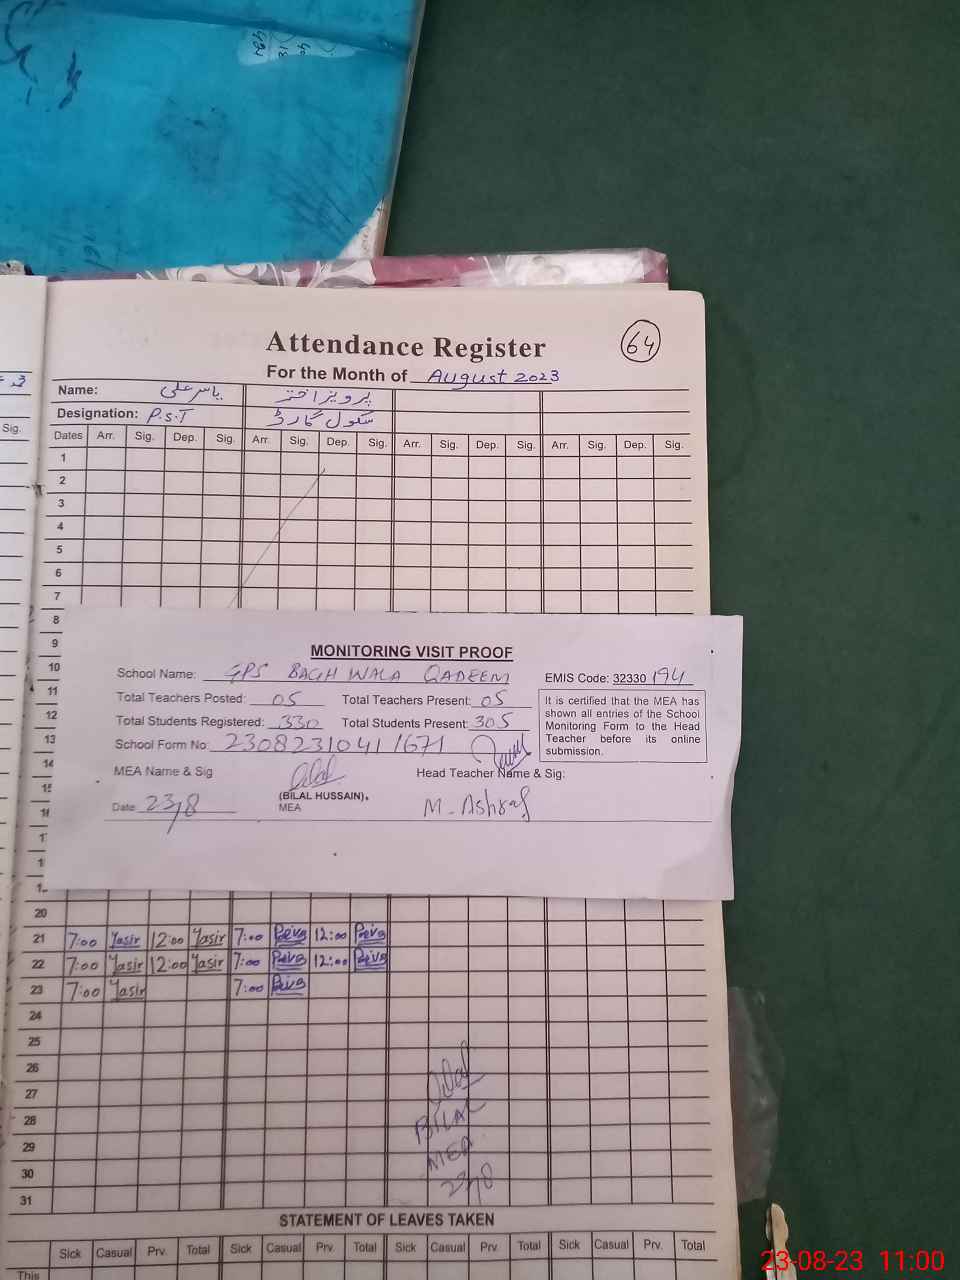 Attendance Register
64
For the Month of August 2023
Name: یاسر علی پرویز اختر
Designation: P.S.T سکول گارڈ
Sig.
Dates Arr. Sig. Dep. Sig. Arr. Sig. Dep. Sig. Arr. Sig. Dep. Sig. Arr. Sig. Dep. Sig.
1
2
3
4
5
6
7
8
9
10
11
12
13
14
15
16
MONITORING VISIT PROOF
School Name: GPS BAGH WALA QADEEM
EMIS Code: 32330 194
Total Teachers Posted: 05 Total Teachers Present: 05
Total Students Registered: 330 Total Students Present: 305
School Form No: 2308231041/1671
It is certified that the MEA has
shown all entries of the School
Monitoring Form to the Head
Teacher before its online
submission.
MEA Name & Sig Bilal Head Teacher Name & Sig:
(BILAL HUSSAIN),
MEA
Date 23/8
M. Ashraf
20
21 7:00 Yasir 12:00 Yasir 7:00 12:00
22 7:00 Yasir 12:00 Yasir 7:00 12:00
23 7:00 Yasir 7:00
24
25
26
27
28
29
30
31
Bilal
BILAL
MEA
23/8
STATEMENT OF LEAVES TAKEN
Sick Casual Prv. Total Sick Casual Prv. Total Sick Casual Prv. Total Sick Casual Prv. Total
This
23-08-23 11:00